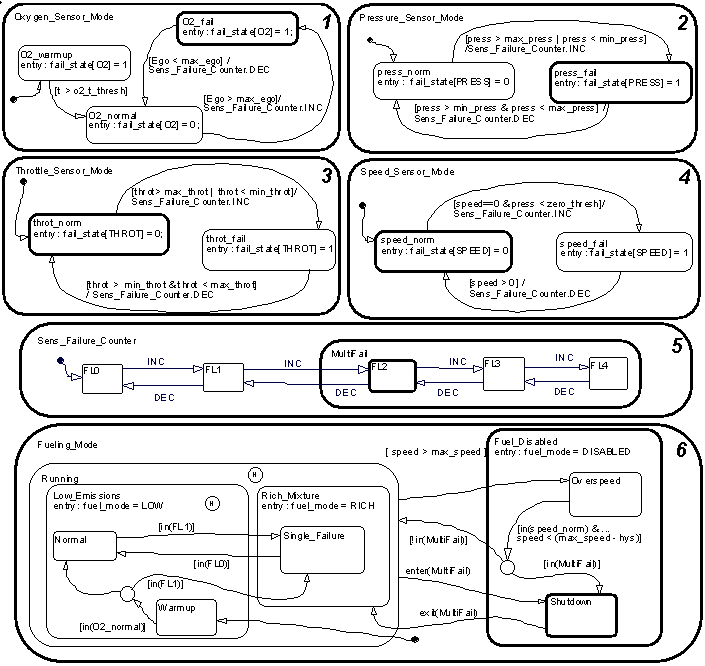 Oxygen_Sensor_Mode
1
O2_fail
entry: fail_state[O2] = 1;
O2_warmup
entry: fail_state[O2] = 1
[Ego < max_ego] /
Sens_Failure_Counter.DEC
[t > o2_t_thresh]
[Ego > max_ego]/
Sens_Failure_Counter.INC
O2_normal
entry: fail_state[O2] = 0;
Pressure_Sensor_Mode
2
[press > max_press | press < min_press]
/Sens_Failure_Counter.INC
press_norm
entry: fail_state[PRESS] = 0
press_fail
entry: fail_state[PRESS] = 1
[press > min_press & press < max_press]
/ Sens_Failure_Counter.DEC
Throttle_Sensor_Mode
3
[throt> max_throt | throt < min_throt]/
Sens_Failure_Counter.INC
throt_norm
entry: fail_state[THROT] = 0;
throt_fail
entry: fail_state[THROT] = 1
[throt > min_throt &throt < max_throt]
/ Sens_Failure_Counter.DEC
Speed_Sensor_Mode
4
[speed==0 &press < zero_thresh]/
Sens_Failure_Counter.INC
speed_norm
entry: fail_state[SPEED] = 0
speed_fail
entry: fail_state[SPEED] = 1
[speed >0] /
Sens_Failure_Counter.DEC
Sens_Failure_Counter
5
MultiFail
FL0
INC
DEC
FL1
INC
DEC
FL2
INC
DEC
FL3
INC
DEC
FL4
Fueling_Mode
6
[ speed > max_speed ]
Fuel_Disabled
entry: fuel_mode = DISABLED
H
Running
Low_Emissions
entry: fuel_mode = LOW
H
Rich_Mixture
entry: fuel_mode = RICH
Overspeed
Normal
[in(FL1)]
Single_Failure
[in(speed_norm) &...
speed < (max_speed - hys)]
[!in(MultiFail)]
[in(FL0)]
[in(FL1)]
[in(MultiFail)]
enter(MultiFail)
Warmup
Shutdown
exit(MultiFail)
[in(O2_normal)]